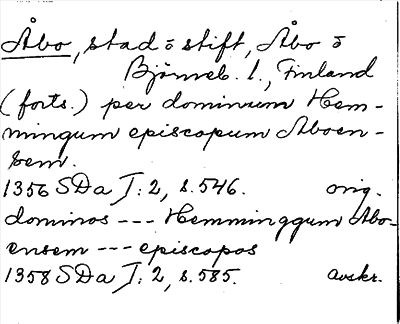 Åbo, stad o stift, Åbo o
Björneb. l., Finland
(forts.) per dominum Hem-
mingum episcopum Aboen-
sem.
1356 SDa I: 2, s. 546. orig.
dominos --- Hemminggum Abo-
ensem --- episcopos
1358 SDa I: 2, s. 585. avskr.